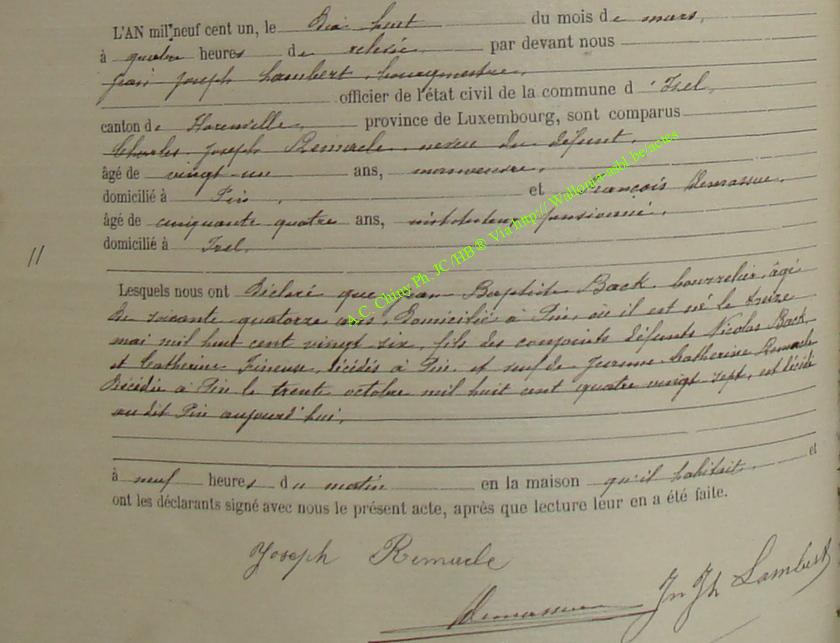 L'AN mil neuf cent un, le Dix huit du mois de mars,
à quatre heures de relevée par devant nous
Jean Joseph Lambert, bourgmestre,
officier de l'état civil de la commune d'Izel,
canton de Florenville, province de Luxembourg, sont comparus
Charles Joseph Remacle neveu du défunt
âgé de vingt un ans, manoeuvre,
domicilié à Pin, et François
âgé de cinquante quatre ans, instituteur pensionné,
domicilié à Izel
11
Lesquels nous ont Déclaré que Jean Baptiste Back, bourrelier, âgé
De soixante quatorze ans, Domicilié à Pin, où il est né le treize
mai mil huit cent vingt six, fils des conjoints défunts Nicolas Back
et Catherine décédés à Pin, et veuf de Jeanne Catherine Remacle
Décédée à Pin le trente octobre mil huit cent quatre vingt sept, est décédé
au dit Pin aujourd'hui,
à neuf heures du matin en la maison qu'il habitait, et
ont les déclarants signé avec nous le présent acte, après que lecture leur en a été faite.
Joseph Remacle
Jn Jh Lambert
A.C. Chiny Ph. JC /HB ® Via http://Wallonia-asbl.be/actes